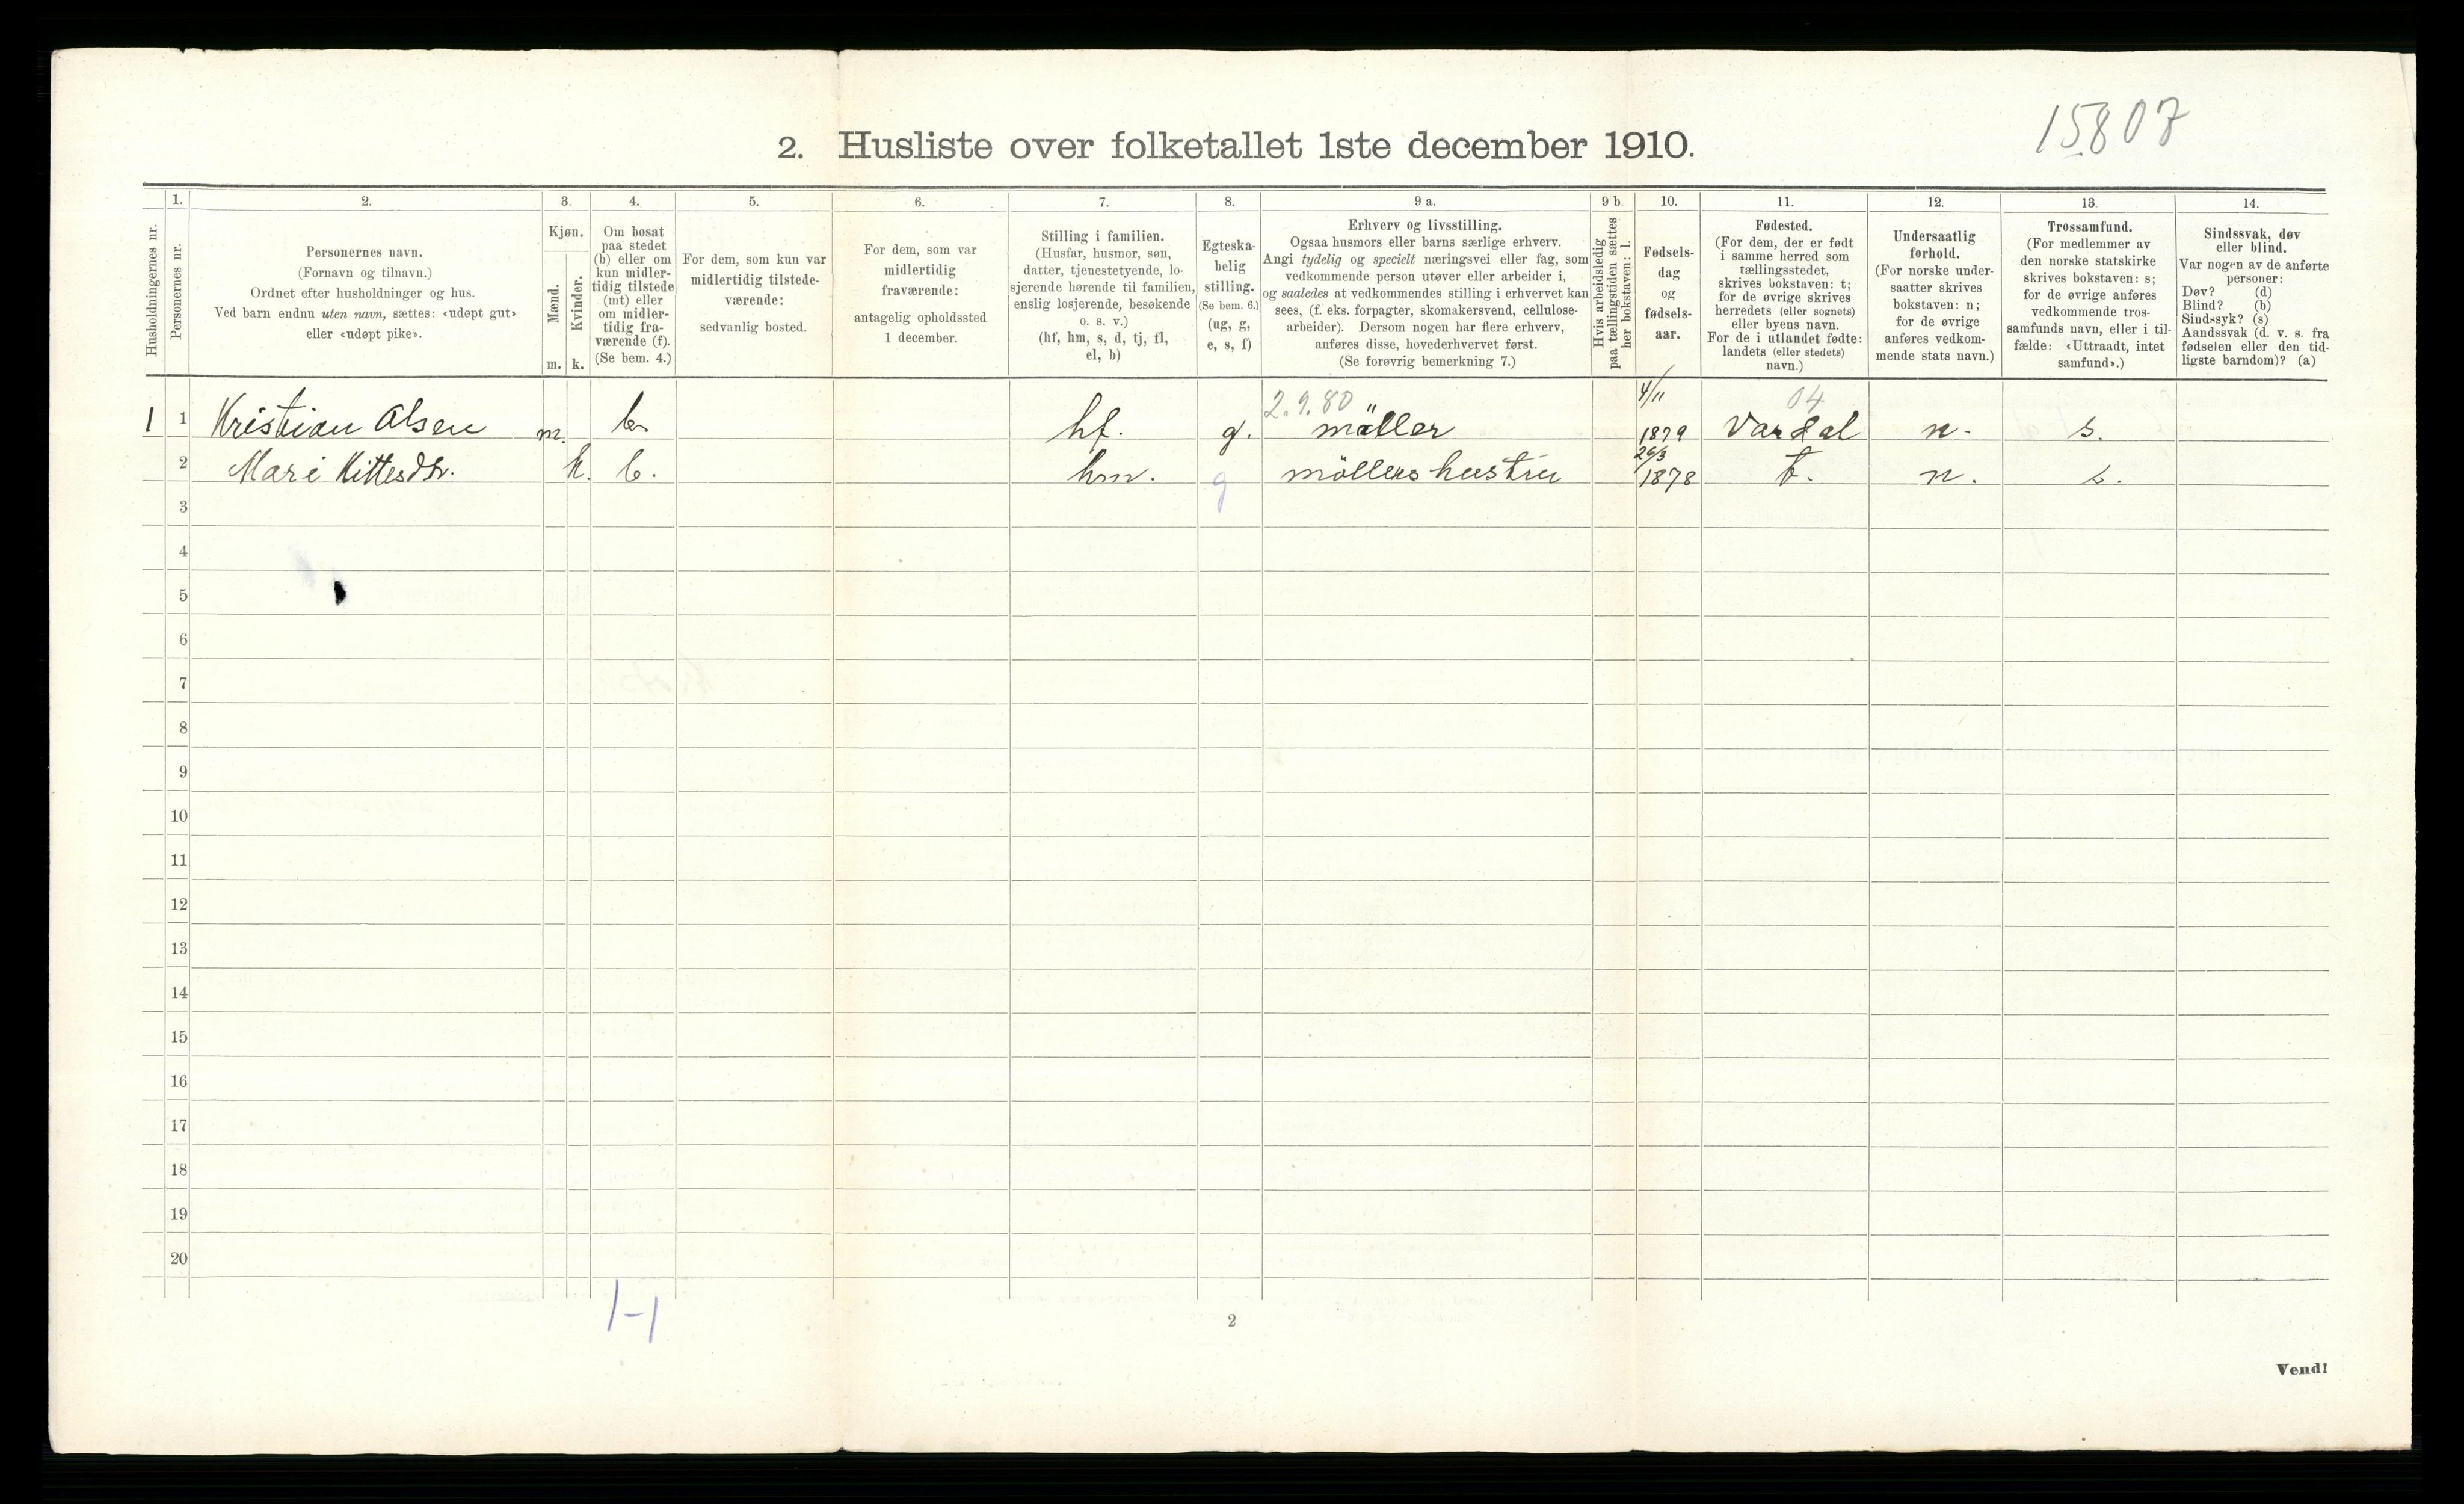 15807
2. Husliste over folketallet 1ste december 1910.
1. 2. 3. 4. 5. 6. 7. 8. 9 a. 9 b. 10. 11. 12. 13. 14.
Husholdningernes nr.
Personernes nr.
Personernes navn.
(Fornavn og tilnavn.)
Ordnet efter husholdninger og hus.
Ved barn endnu uten navn, sættes: «udøpt gut»
eller «udøpt pike».
Kjøn.
Mænd.
m.
Kvinder.
k.
Om bosat
paa stedet
(b) eller om
kun midler-
tidig tilstede
(mt) eller
om midler-
tidig fra-
værende (f).
(Se bem. 4.)
For dem, som kun var
midlertidig tilstede-
værende:
sedvanlig bosted.
For dem, som var
midlertidig
fraværende:
antagelig opholdssted
1 december.
Stilling i familien.
(Husfar, husmor, søn,
datter, tjenestetyende, lo-
sjerende hørende til familien,
enslig losjerende, besøkende
o. s. v.)
(hf, hm, s, d, tj, fl,
el, b)
Egteska-
belig
stilling.
(Se bem. 6.)
(ug, g,
e, s, f)
Erhverv og livsstilling.
Ogsaa husmors eller barns særlige erhverv.
Angi tydelig og specielt næringsvei eller fag, som
vedkommende person utøver eller arbeider i,
og saaledes at vedkommendes stilling i erhvervet kan
sees, (f. eks. forpagter, skomakersvend, cellulose-
arbeider). Dersom nogen har flere erhverv,
anføres disse, hovederhvervet først.
(Se forøvrig bemerkning 7.)
Hvis arbeidsledig
paa tællingstiden sættes
her bokstaven: l.
Fødsels-
dag
og
fødsels-
aar.
Fødested.
(For dem, der er født
i samme herred som
tællingsstedet,
skrives bokstaven: t;
for de øvrige skrives
herredets (eller sognets)
eller byens navn.
For de i utlandet fødte:
landets (eller stedets)
navn.)
Undersaatlig
forhold.
(For norske under-
saatter skrives
bokstaven: n;
for de øvrige
anføres vedkom-
mende stats navn.)
Trossamfund.
(For medlemmer av
den norske statskirke
skrives bokstaven: s;
for de øvrige anføres
vedkommende tros-
samfunds navn, eller i til-
fælde: «Uttraadt, intet
samfund».)
Sindssvak, døv
eller blind.
Var nogen av de anførte
personer:
Døv? (d)
Blind? (b)
Sindssyk? (s)
Aandssvak (d. v. s. fra
fødselen eller den tid-
ligste barndom)? (a)
2.9.80 4/11 04
1 1 Kristian Olsen m. b. hf. g. möller 1879 Vardal n. s.
26/3
2 Mari Kittesdtr. k. b. hm. g möllers hustru 1878 t. n. s.
3
4
5
6
7
8
9
10
11
12
13
14
15
16
17
18
19
20
1-1
2
Vend!